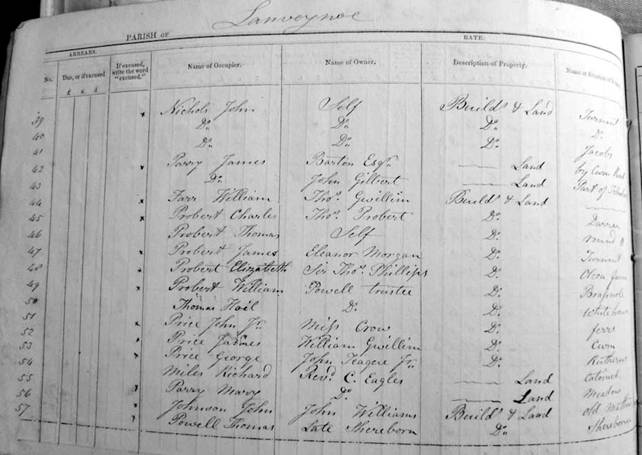 Lanveynoe
PARISH OF RATE.
ARREARS.
No. Due, or if excused If excused, write the word "excused." Name of Occupier. Name of Owner. Description of Property. Name or Situation of
£ s d
39 Nichols John Self Builds & Land
40 Do Do Do Do
41 Do Do Jacobs
42 Parry James Barton Esqr Land
43 Do John Gilbert Land Part of
44 Farr William Thos Gwillim Builds & Land
45 Probert Charles Thos Probert Do
46 Probert Thomas Self Do
47 Probert James Eleanor Morgan Do
48 Probert Elizabeth Sir Thos Phillips Do
49 Probert William Powell trustee Do
50 Thomas Hail Do Do
51 Price John Jr Miss Crow Do
52 Price James William Gwillim Do Cwm
53 Price George John Teague Jr Do
54 Miles Richard Revd C. Eagles Land
55 Parry Mary Do Land
56 Johnson John John Williams Builds & Land
57 Powell Thomas Late Shereborn Do Shereborn